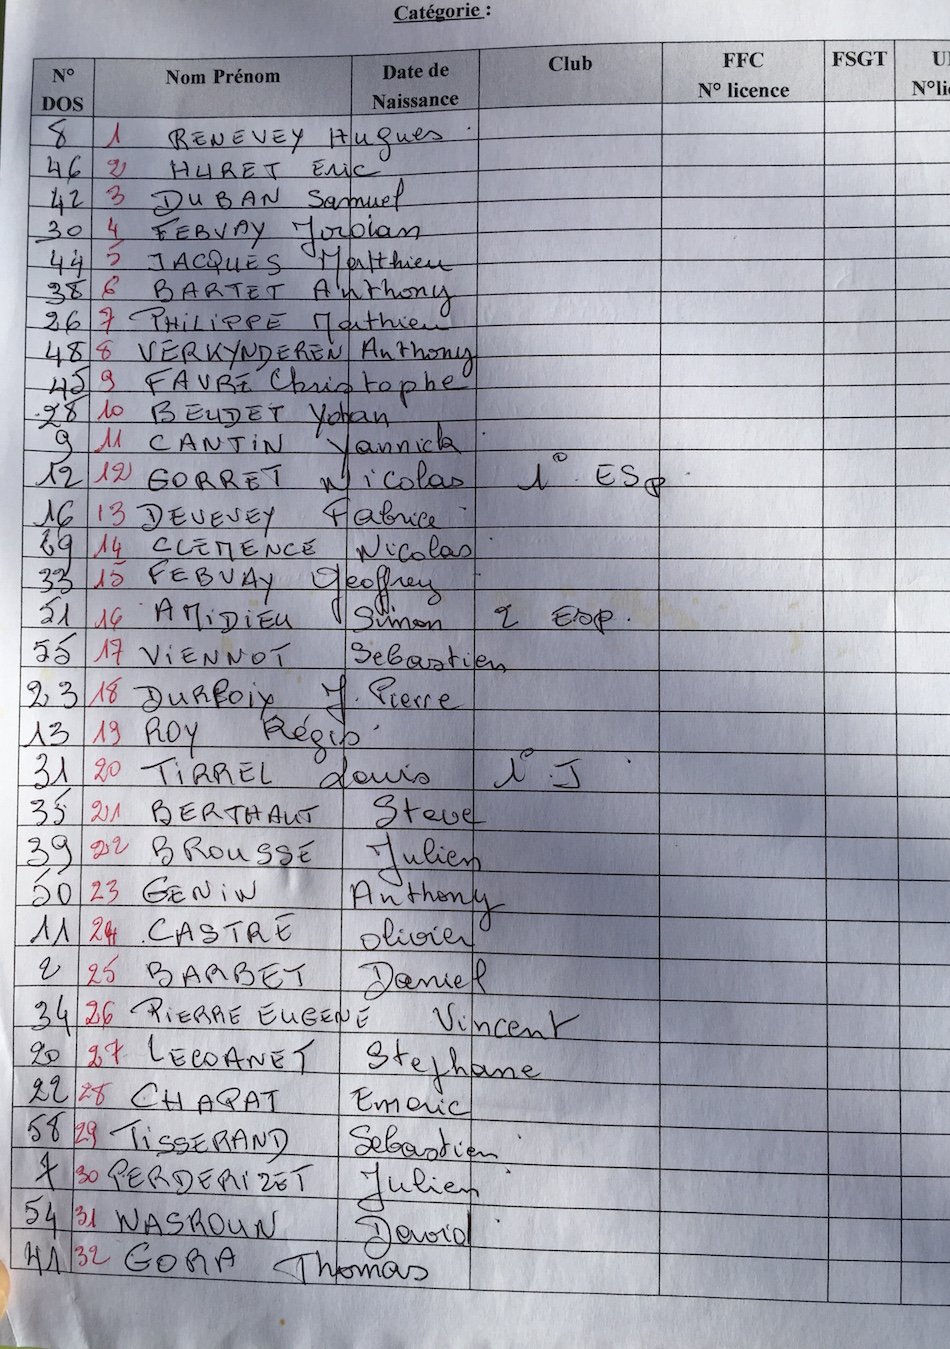 Catégorie :
N° DOS Nom Prénom Date de Naissance Club FFC N° licence FSGT
8 1 RENEVEY Hugues
46 2 HURET Eric
42 3 DUBAN Samuel
30 4 FEBVAY Jordan
44 5 JACQUES Matthieu
38 6 BARTET Anthony
26 7 PHILIPPE Mathieu
48 8 VERKYNDEREN Anthony
45 9 FAVRE Christophe
28 10 BEUDET Yohan
9 11 CANTIN Yannick
12 12 GORRET Nicolas 1° ESp
16 13 DEVEVEY Fabrice
14 CLEMENCE Nicolas
33 15 FEBVAY Geoffrey
51 16 AMIDIEU Simon 2 ESp.
55 17 VIENNOT Sebastien
23 18 J. Pierre
13 19 ROY Régis
31 20 TIRREL Louis 1° J
35 21 BERTHAUT Steve
39 22 BROUSSE Julien
50 23 GENIN Anthony
11 24 CASTRE Olivier
2 25 BARBET Daniel
34 26 PIERRE EUGENE Vincent
20 27 LECOANET Stephane
22 28 CHAPAT Emeric
58 29 TISSERAND Sebastien
7 30 PERDERIZET Julien
54 31 NASROUN David
41 32 GORA Thomas